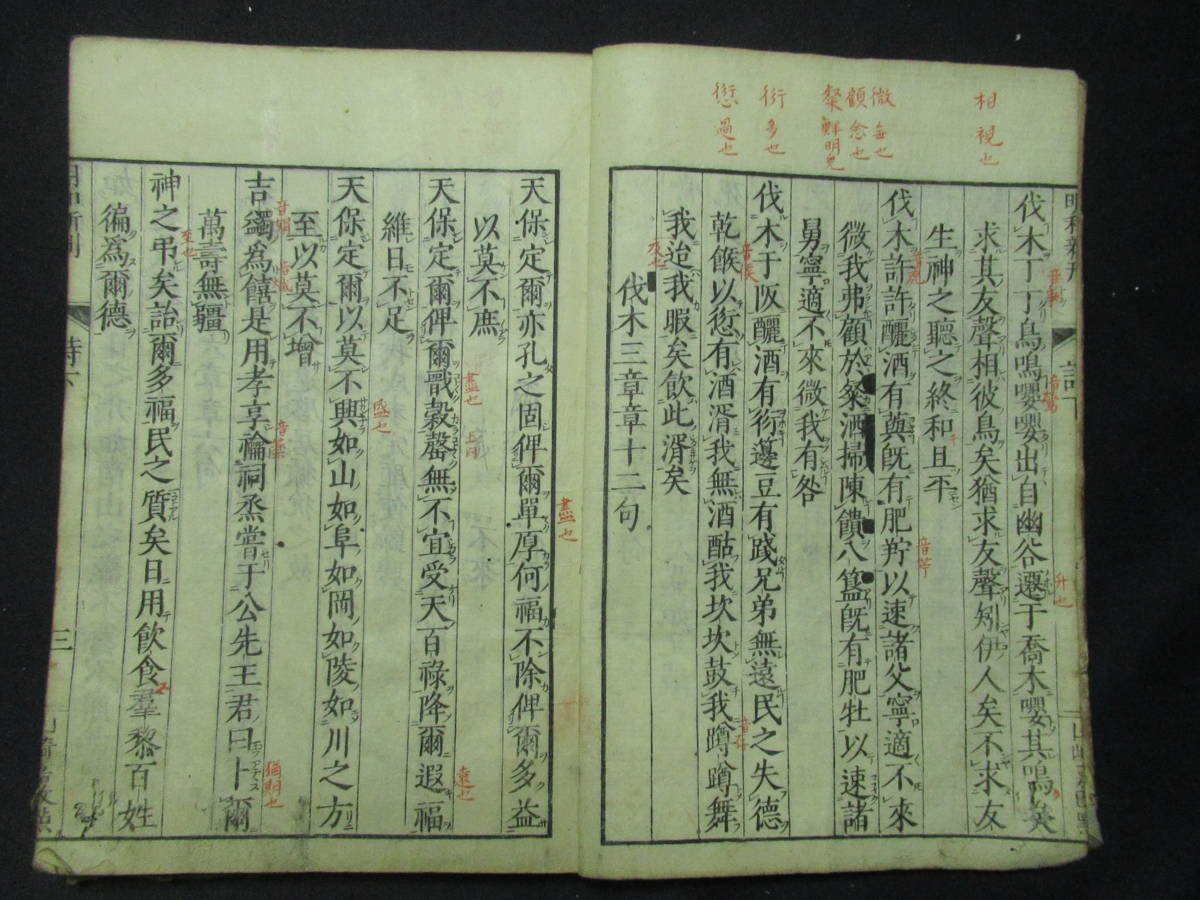 相視也
微無也
顧念也
粲鮮明皃
衍多也
愆過也
伐木丁丁鳥鳴嚶嚶出自幽谷遷于喬木嚶其鳴矣
求其友聲相彼鳥矣猶求友聲矧伊人矣不求友
生神之聽之終和且平
伐木許許釃酒有藇既有肥羜以速諸父寧適不來
微我弗顧於粲洒掃陳饋八簋既有肥牡以速諸
舅寧適不來微我有咎
伐木于阪釃酒有衍籩豆有踐兄弟無遠民之失德
乾餱以愆有酒湑我無酒酤我坎坎鼓我蹲蹲舞
我迨我暇矣飲此湑矣
伐木三章章十二句
天保定爾亦孔之固俾爾單厚何福不除俾爾多益
以莫不庶
天保定爾俾爾戩穀罄無不宜受天百祿降爾遐福
維日不足
天保定爾以莫不興如山如阜如岡如陵如川之方
至以莫不增
吉蠲為饎是用孝享禴祠烝嘗于公先王君曰卜爾
萬壽無疆
神之弔矣詒爾多福民之質矣日用飲食羣黎百姓
徧為爾德
詩下
三